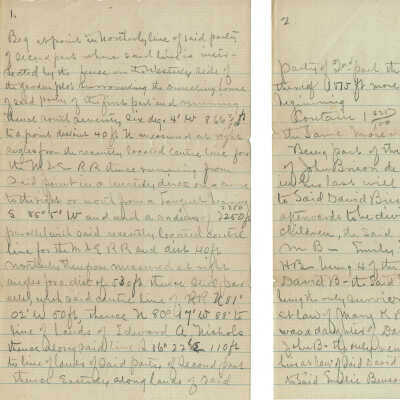 1.
Beg at point in Northerly line of said party
of second part where said line is inter-
sected by the fence on the Westerly side of
the garden plot surrounding the dwelling house
of said party of the first part and running
thence north seventy six deg. 4' W 866 3/10 ft
to a point distant 40 ft N measured at right
angles from the recently located centre line for
the M & E RR thence running from
said point in a westerly direct on a curve
to the right or north from a tangent
S 88° 5' W and with a radius of 2250 ft
parallel with said recently located centre
line for the M & E RR and dist 40 ft
northerly therefrom measured at right
angles for a dist of ft thence still par-
allel with said central line of RR N 81°
02' W 50 ft, thence N 80° 17' W 88 to
line of lands of Edward A Nichols
thence along said line S 16° 22' E 110 ft
to line of lands of said party of second part
thence Easterly along lands of said
2
party of 2nd part the
thereof 1175 ft more
beginning
Contain 1
the same more or
Being part of the
of John Burson de
in his last will
to said David Burs
afterwards to be div
children, the said
M B - Emily
H B - being 4 of the
David B - the said
being the only survivor
at law of Mary K B
was a daughter of Dav
John B - the only
heir at law of said David
to said Emilie Burso